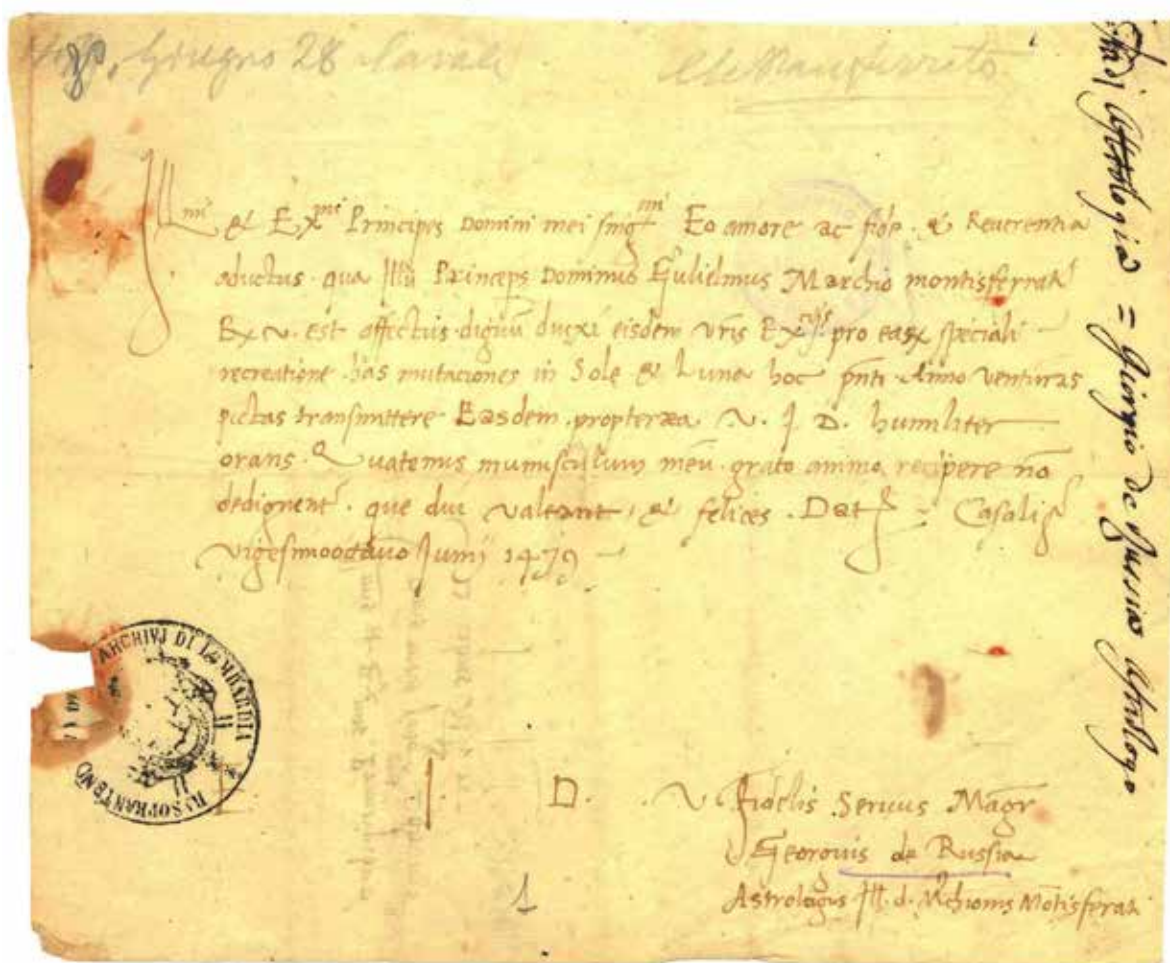 Giugno 28 Casale
Monferrato
Ill mi & Ex mi Principes Domini mei sing mi Eo amore ac fide . & Reverentia
aductus . qua Illu Princeps Dominus Gulielmus Marchio montisferrati
Ex v. est affectus . dignu duxi eisdem vris Ex pro eaꝝ speciali
recreatione . has mutaciones in Sole & Luna hoc pnti Anno venturas
pictas transmittere Easdem . propterea . V . J . D . humiliter
orans . Quatenus munusculum meu . grato animo recipere no
dedignent . que diu valeant . & felices . Dat Casalis
vigesimooctavo Junij 1479
I . D . V . Fidelis Servus Magr
Georgius de Russia
Astrologus Ill . d . Mchionis Motisferati
1
Astrologia = Giorgio de Russia Astrologo
ARCHIVJ DI LOMBARDIA